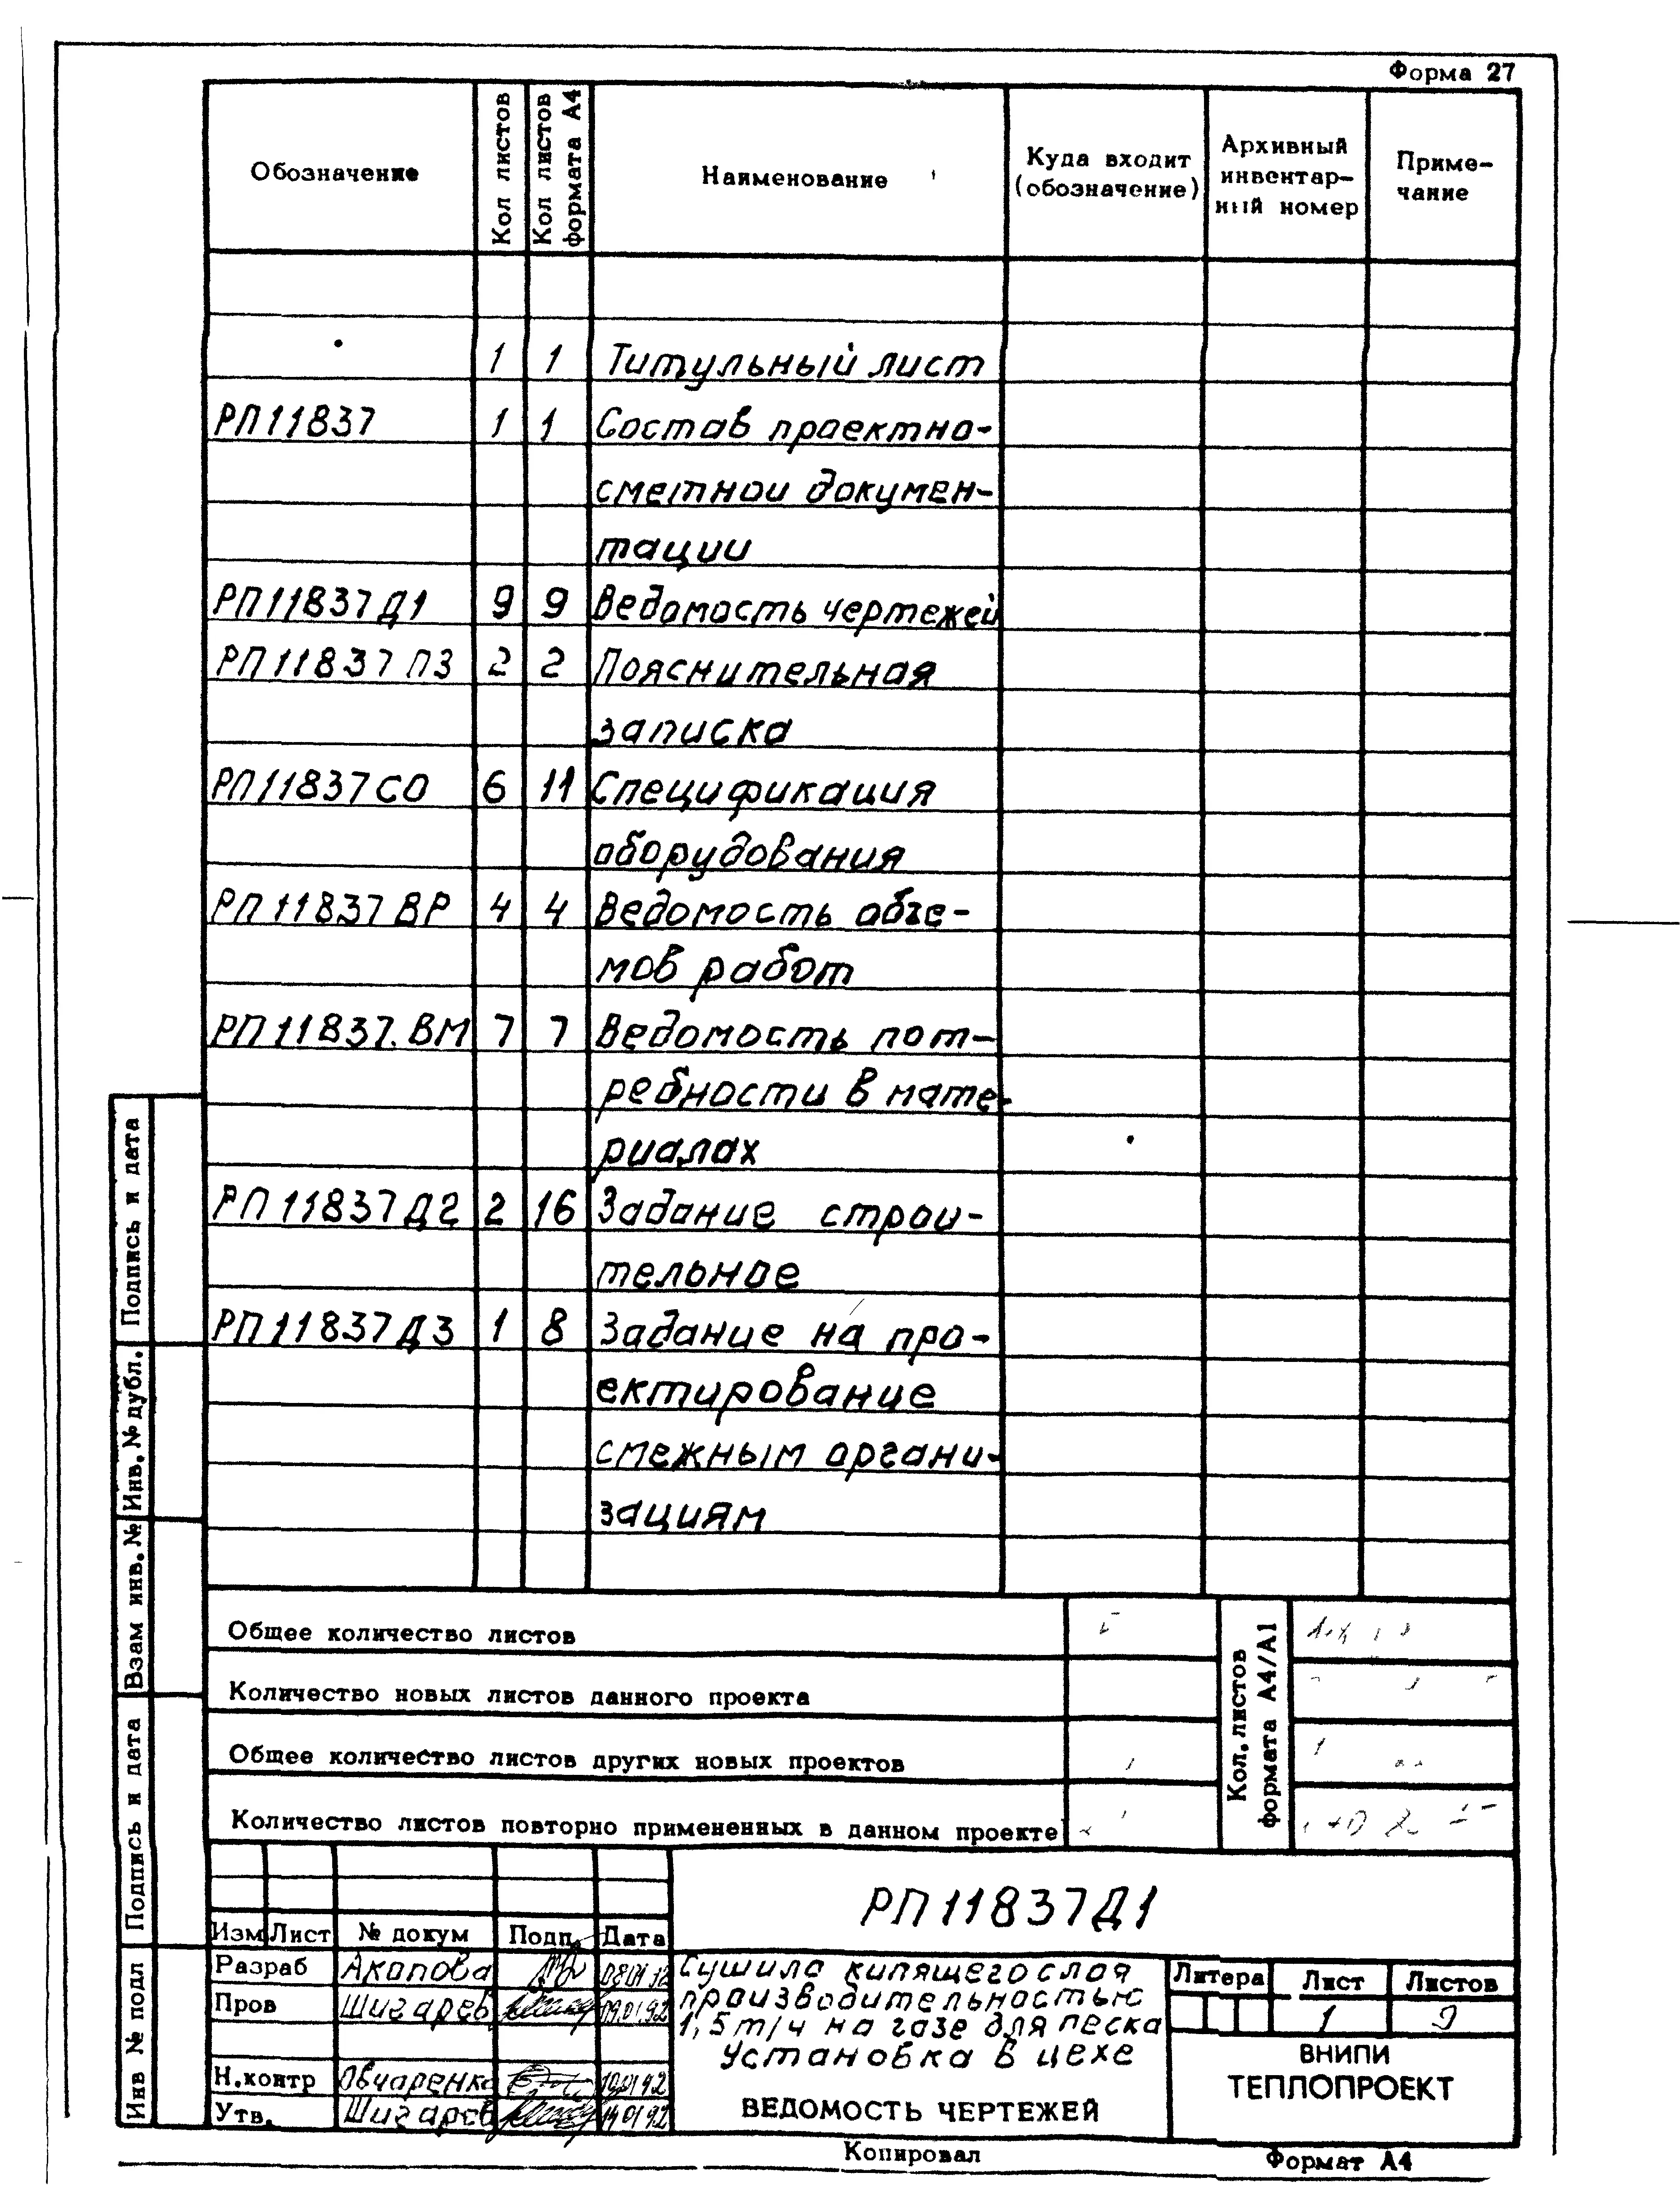 Форма 27
Обозначение
Кол листов
Кол листов формата А4
Наименование
Куда входит (обозначение)
Архивный инвентар-ный номер
Приме-чание
1 1 Титульный лист
РП11837 1 1 Состав проектно-
сметной докумен-
тации
РП11837Д1 9 9 Ведомость чертежей
РП11837 ПЗ 2 2 Пояснительная
записка
РП11837СО 6 11 Спецификация
оборудования
РП11837 ВР 4 4 Ведомость объе-
мов работ
РП11837. ВМ 7 7 Ведомость пот-
ребности в мате-
риалах
РП11837Д2 2 16 Задание строи-
тельное
РП11837Д3 1 8 Задание на про-
ектирование
смежным органи-
зациям
Общее количество листов
Количество новых листов данного проекта
Общее количество листов других новых проектов
Количество листов повторно примененных в данном проекте
Кол. листов формата А4/А1
Подпись и дата
Инв. № дубл.
Взам инв. №
Подпись и дата
Инв № подл
РП11837Д1
Изм Лист № докум Подп. Дата
Разраб Акопова
Пров Шигарев 09.01.92
Н.контр Овчаренко
Утв. Шигарев 14.01.92
Сушило кипящего слоя
производительностью
1,5 т/ч на газе для песка
Установка в цехе
ВЕДОМОСТЬ ЧЕРТЕЖЕЙ
Литера Лист Листов
1 9
ВНИПИ
ТЕПЛОПРОЕКТ
Копировал
Формат А4